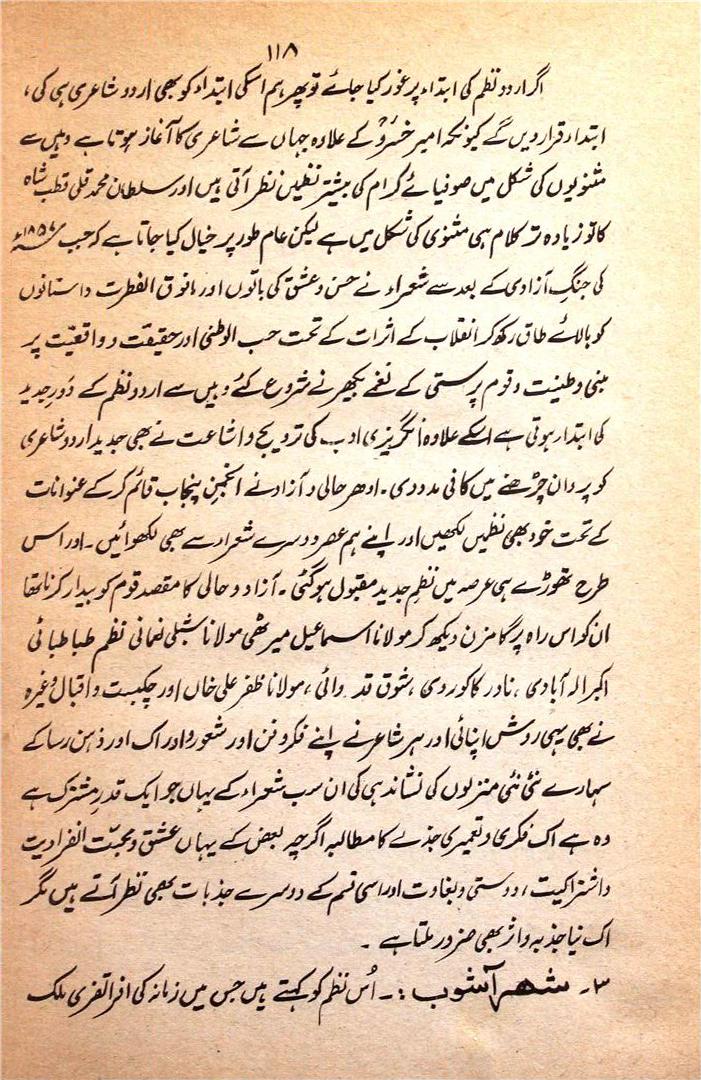 ۱۱۸
اگر اردو نظم کی ابتداء پر غور کیا جائے تو پھر ہم اسکی ابتداء کو بھی اردو شاعری ہی کی،
ابتداء قرار دیں گے کیونکہ امیر خسروؒ کے علاوہ جہاں سے شاعری کا آغاز ہوتا ہے وہیں سے
مثنویوں کی شکل میں صوفیائے کرام کی بیشتر نظمیں نظر آتی ہیں اور سلطان محمد قلی قطب شاہ
کا تو زیادہ تر کلام ہی مثنوی کی شکل میں ہے لیکن عام طور پر خیال کیا جاتا ہے کہ جب ۱۸۵۷ء
کی جنگِ آزادی کے بعد سے شعراء نے حسن و عشق کی باتوں اور مافوق الفطرت داستانوں
کو بالائے طاق رکھ کر انقلاب کے اثرات کے تحت حب الوطنی اور حقیقت و واقعیّت پر
مبنی وطنیت و قوم پرستی کے نغمے بکھیرنے شروع کئے وہیں سے اردو نظم کے دَورِ جدید
کی ابتداء ہوتی ہے اسکے علاوہ انگریزی ادب کی ترویج و اشاعت نے بھی جدید اردو شاعری
کو پروان چڑھنے میں کافی مدد دی۔ ادھر حالی و آزاد نے انجمنِ پنجاب قائم کر کے عنوانات
کے تحت خود بھی نظمیں لکھیں اور اپنے ہم عصر دوسرے شعراء سے بھی لکھوائیں۔ اور اس
طرح تھوڑے ہی عرصہ میں نظمِ جدید مقبول ہو گئی۔ آزاد و حالی کا مقصد قوم کو بیدار کرنا تھا
ان کو اس راہ پر گامزن دیکھ کر مولانا اسماعیل میرٹھی مولانا شبلی نعمانی نظم طباطبائی
اکبر الہ آبادی، نادر کاکوروی، شوق قدوائی، مولانا ظفر علی خاں اور چکبست و اقبال وغیرہ
نے بھی یہی روش اپنائی اور ہر شاعر نے اپنے فکر و فن اور شعور و ادراک اور ذہن رسا کے
سہارے نئی نئی منزلوں کی نشاندہی کی ان سب شعراء کے یہاں جو ایک قدرِ مشترک ہے
وہ ہے اک فکری و تعمیری جذبے کا مطالبہ اگرچہ بعض کے یہاں عشق و محبّت انفرادیت
و اشتراکیت، دوستی و بغاوت اور اسی قسم کے دوسرے جذبات بھی نظر آتے ہیں مگر
اک نیا جذبہ و اثر بھی ضرور ملتا ہے۔
۳۔ شہر آشوب :۔ اُس نظم کو کہتے ہیں جس میں زمانہ کی افراتفری ملک